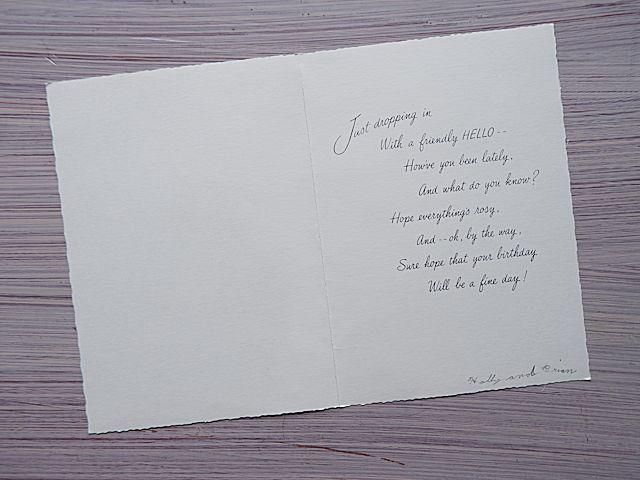 Just dropping in
With a friendly HELLO--
How've you been lately,
And what do you know?
Hope everything's rosy,
And--oh, by the way,
Sure hope that your birthday
Will be a fine day!
Holly and Brian